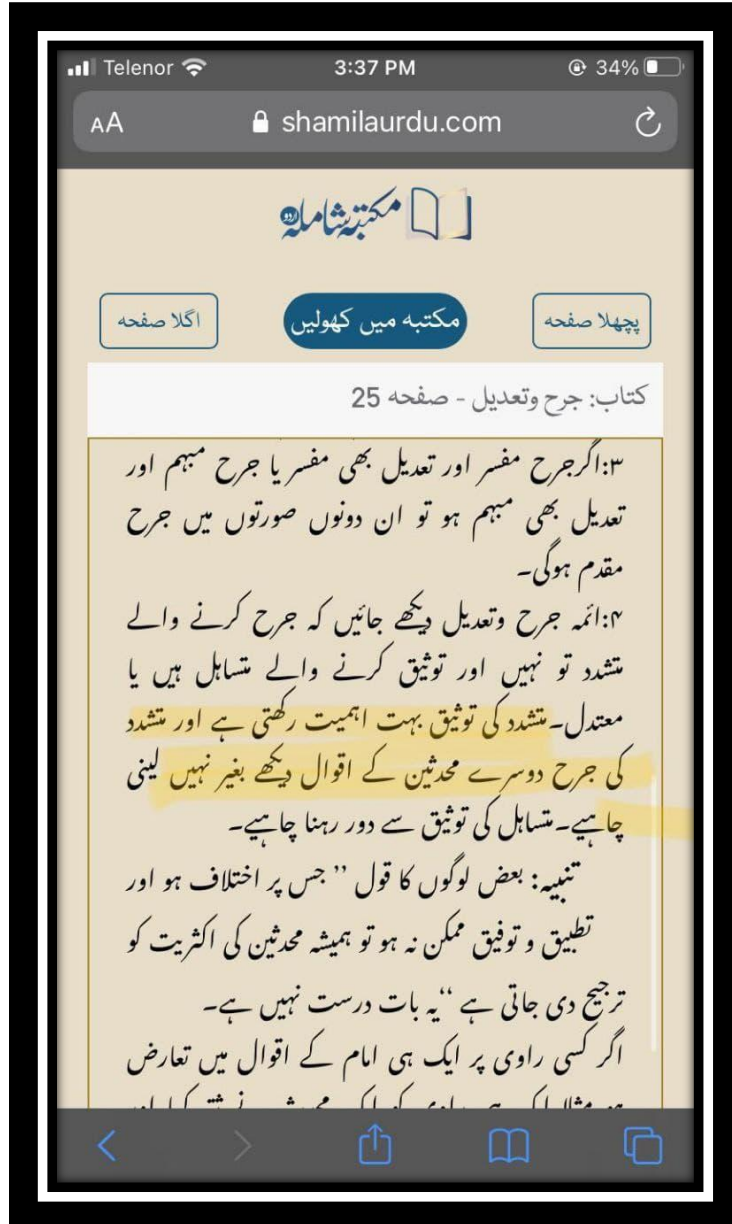 Telenor 3:37 PM 34%
AA shamilaurdu.com
مکتبہ شاملہ اردو
پچھلا صفحہ مکتبہ میں کھولیں اگلا صفحہ
کتاب: جرح وتعدیل - صفحہ 25
۳:اگرجرح مفسر اور تعدیل بھی مفسر یا جرح مبہم اور
تعدیل بھی مبہم ہو تو ان دونوں صورتوں میں جرح
مقدم ہوگی۔
۴:ائمہ جرح وتعدیل دیکھے جائیں کہ جرح کرنے والے
متشدد تو نہیں اور توثیق کرنے والے متساہل ہیں یا
معتدل۔متشدد کی توثیق بہت اہمیت رکھتی ہے اور متشدد
کی جرح دوسرے محدثین کے اقوال دیکھے بغیر نہیں لینی
چاہیے۔متساہل کی توثیق سے دور رہنا چاہیے۔
تنبیہ: بعض لوگوں کا قول ’’ جس پر اختلاف ہو اور
تطبیق و توفیق ممکن نہ ہو تو ہمیشہ محدثین کی اکثریت کو
ترجیح دی جاتی ہے ‘‘یہ بات درست نہیں ہے۔
اگر کسی راوی پر ایک ہی امام کے اقوال میں تعارض